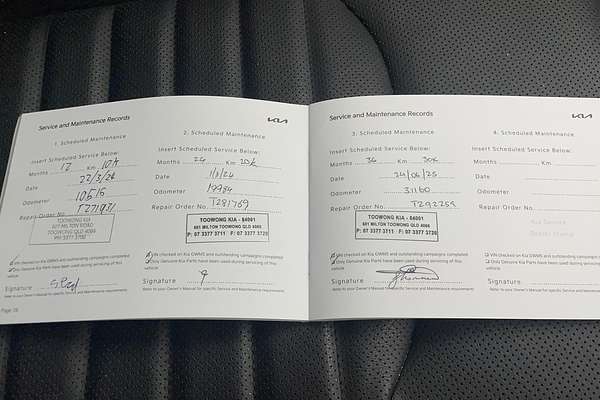 Service and Maintenance Records
KIA
1. Scheduled Maintenance
Insert Scheduled Service Below:
Months 12 Km 10k
Date
Odometer 10515
Repair Order No.
TOOWONG KIA
601 MILTON ROAD
TOOWONG QLD 4066
PH 3377 3700
VIN checked on Kia GWMS and outstanding campaigns completed
Only Genuine Kia Parts have been used during servicing of this
vehicle
Signature
Refer to your Owner's Manual for specific Service and Maintenance requirements
2. Scheduled Maintenance
Insert Scheduled Service Below:
Months 24 Km 20k
Date
Odometer 19984
Repair Order No. T281769
TOOWONG KIA - 84091
601 MILTON TOOWONG QLD 4066
P: 07 3377 3711 F: 07 3377 3720
VIN checked on Kia GWMS and outstanding campaigns completed
Only Genuine Kia Parts have been used during servicing of this
vehicle
Signature
Refer to your Owner's Manual for specific Service and Maintenance requirements
Service and Maintenance Records
KIA
3. Scheduled Maintenance
Insert Scheduled Service Below:
Months 36 Km 30k
Date 24/06/25
Odometer 31160
Repair Order No. T292259
TOOWONG KIA - 84091
601 MILTON TOOWONG QLD 4066
P: 07 3377 3711 F: 07 3377 3720
VIN checked on Kia GWMS and outstanding campaigns completed
Only Genuine Kia Parts have been used during servicing of this
vehicle
Signature
Refer to your Owner's Manual for specific Service and Maintenance requirements
4. Scheduled Maintenance
Insert Scheduled Service Below:
Months Km
Date
Odometer
Repair Order No.
Kia Service
Dealer Stamp
VIN checked on Kia GWMS and outstanding campaigns
Only Genuine Kia Parts have been used during servicing
vehicle
Signature
Refer to your Owner's Manual for specific Service and Maintenance